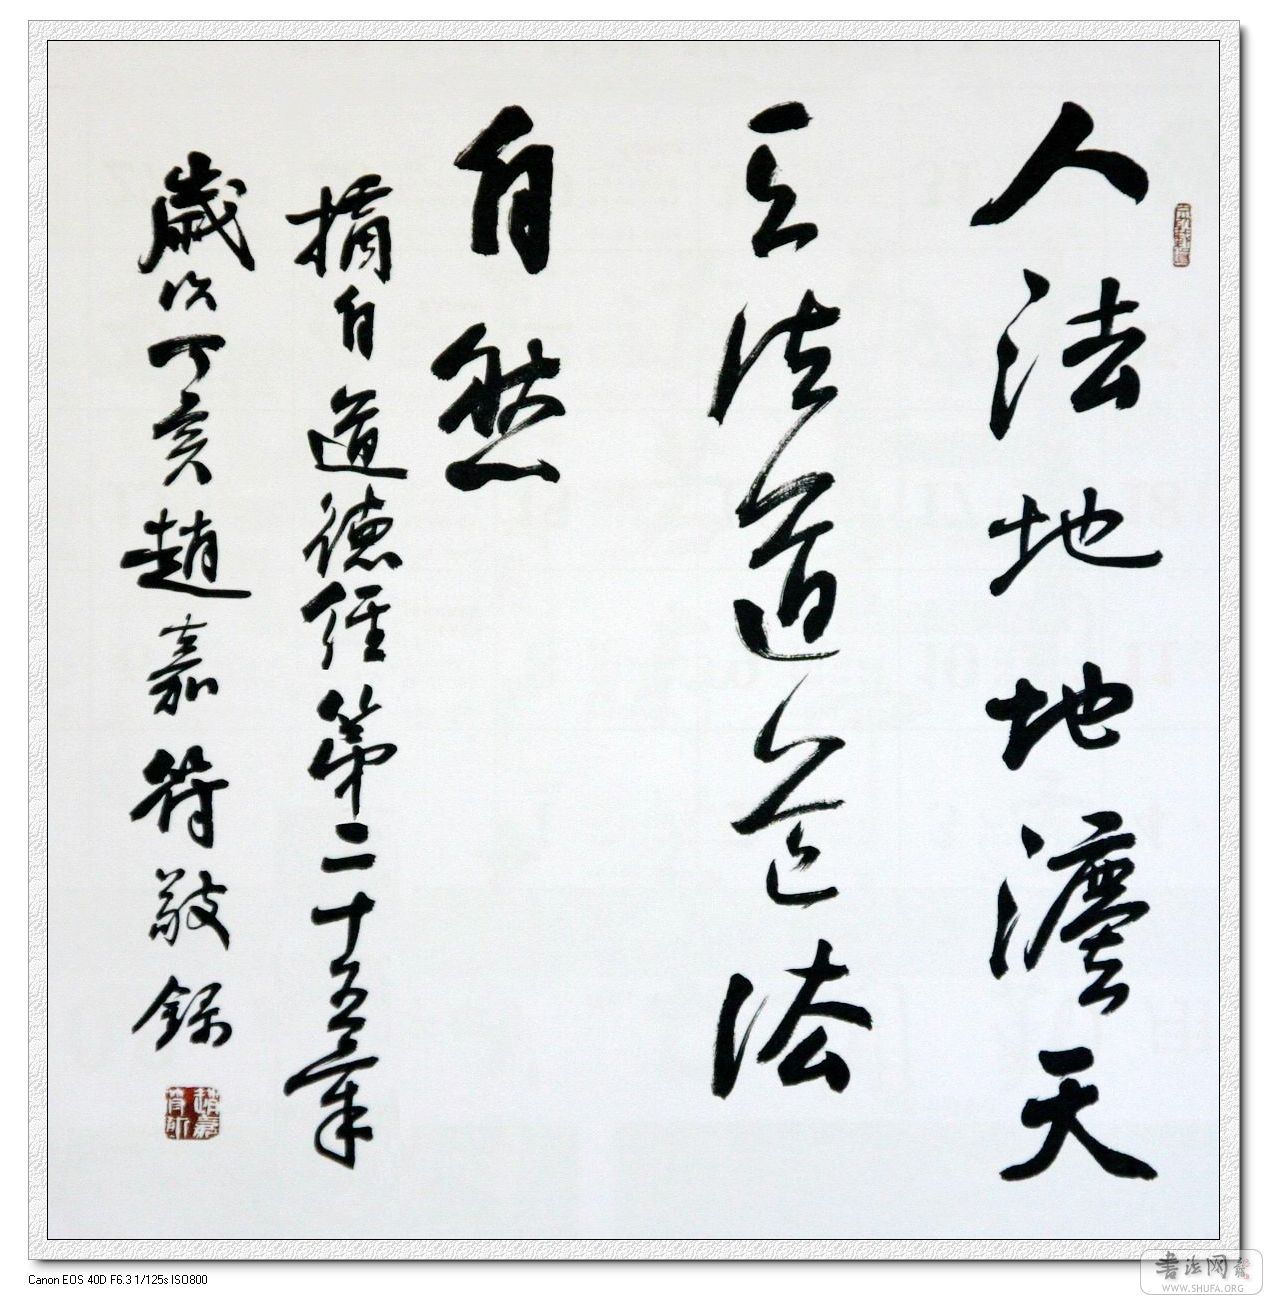 人法地地灋天
天法道道法
自然
摘自道德经第二十五章
歲次丁亥趙嘉符敬録
Canon EOS 40D F6.3 1/125s ISO800
书法网
WWW.SHUFA.ORG